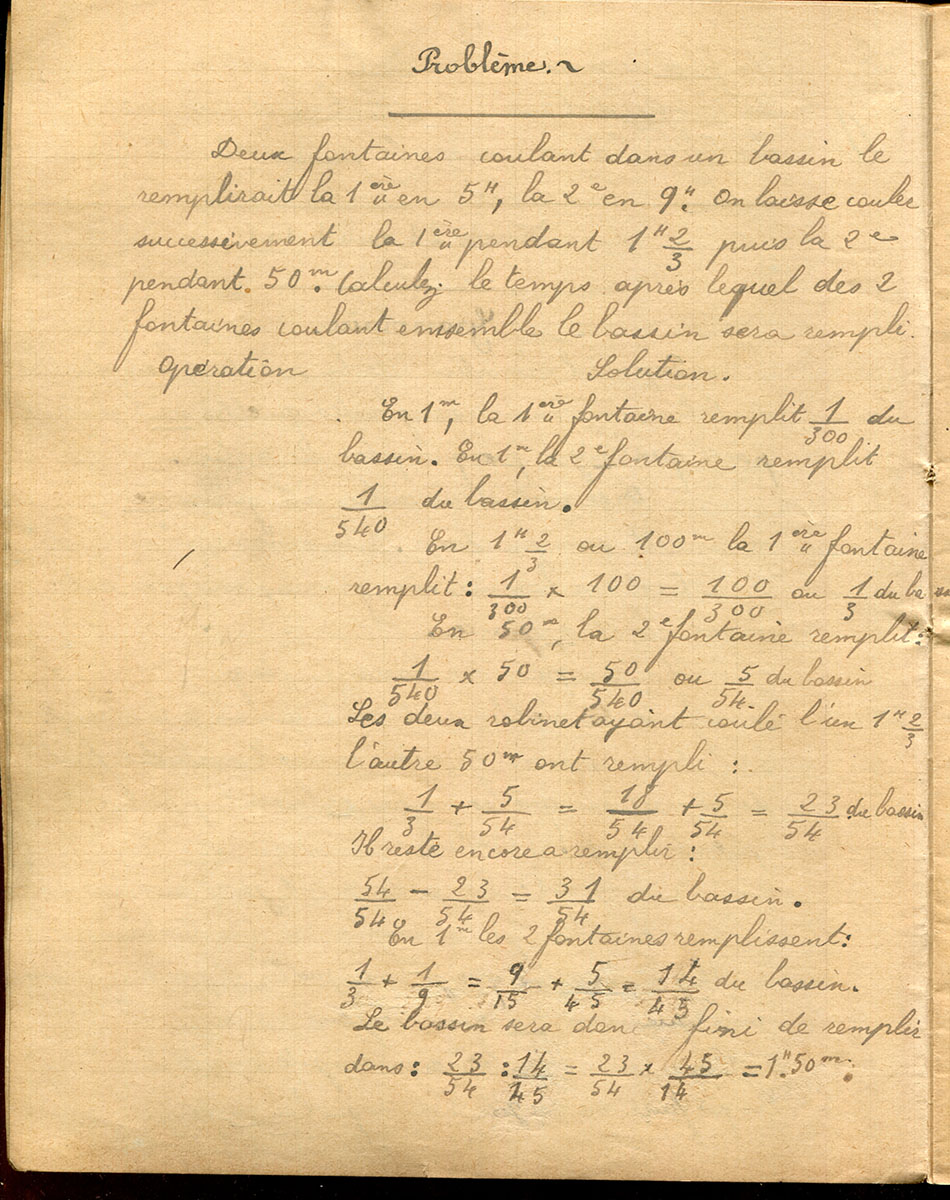 Problème. ~
Deux fontaines coulant dans un bassin le
remplirait la 1ère en 5H, la 2e en 9H. On laisse couler
successivement la 1ère pendant 1H 2/3 puis la 2e
pendant 50m. Calculez le temps après lequel des 2
fontaines coulant ensemble le bassin sera rempli.
Opération Solution.
En 1m, la 1ère fontaine remplit 1/300 du
bassin. En 1m, la 2e fontaine remplit
1/540 du bassin.
En 1H 2/3 ou 100m la 1ère fontaine
remplit : 1/300 × 100 = 100/300 ou 1/3 du
En 50m, la 2e fontaine remplit :
1/540 × 50 = 50/540 ou 5/54 du bassin
Les deux robinet ayant coulé l'un 1H 2/3
l'autre 50m ont rempli :
1/3 + 5/54 = 18/54 + 5/54 = 23/54 du bassin
Il reste encore a remplir :
54/54 - 23/54 = 31/54 du bassin.
En 1m les 2 fontaines remplissent :
1/3 + 1/9 = 9/15 + 5/45 = 14/45 du bassin.
Le bassin sera donc fini de remplir
dans : 23/54 : 14/45 = 23/54 × 45/14 = 1H.50m.